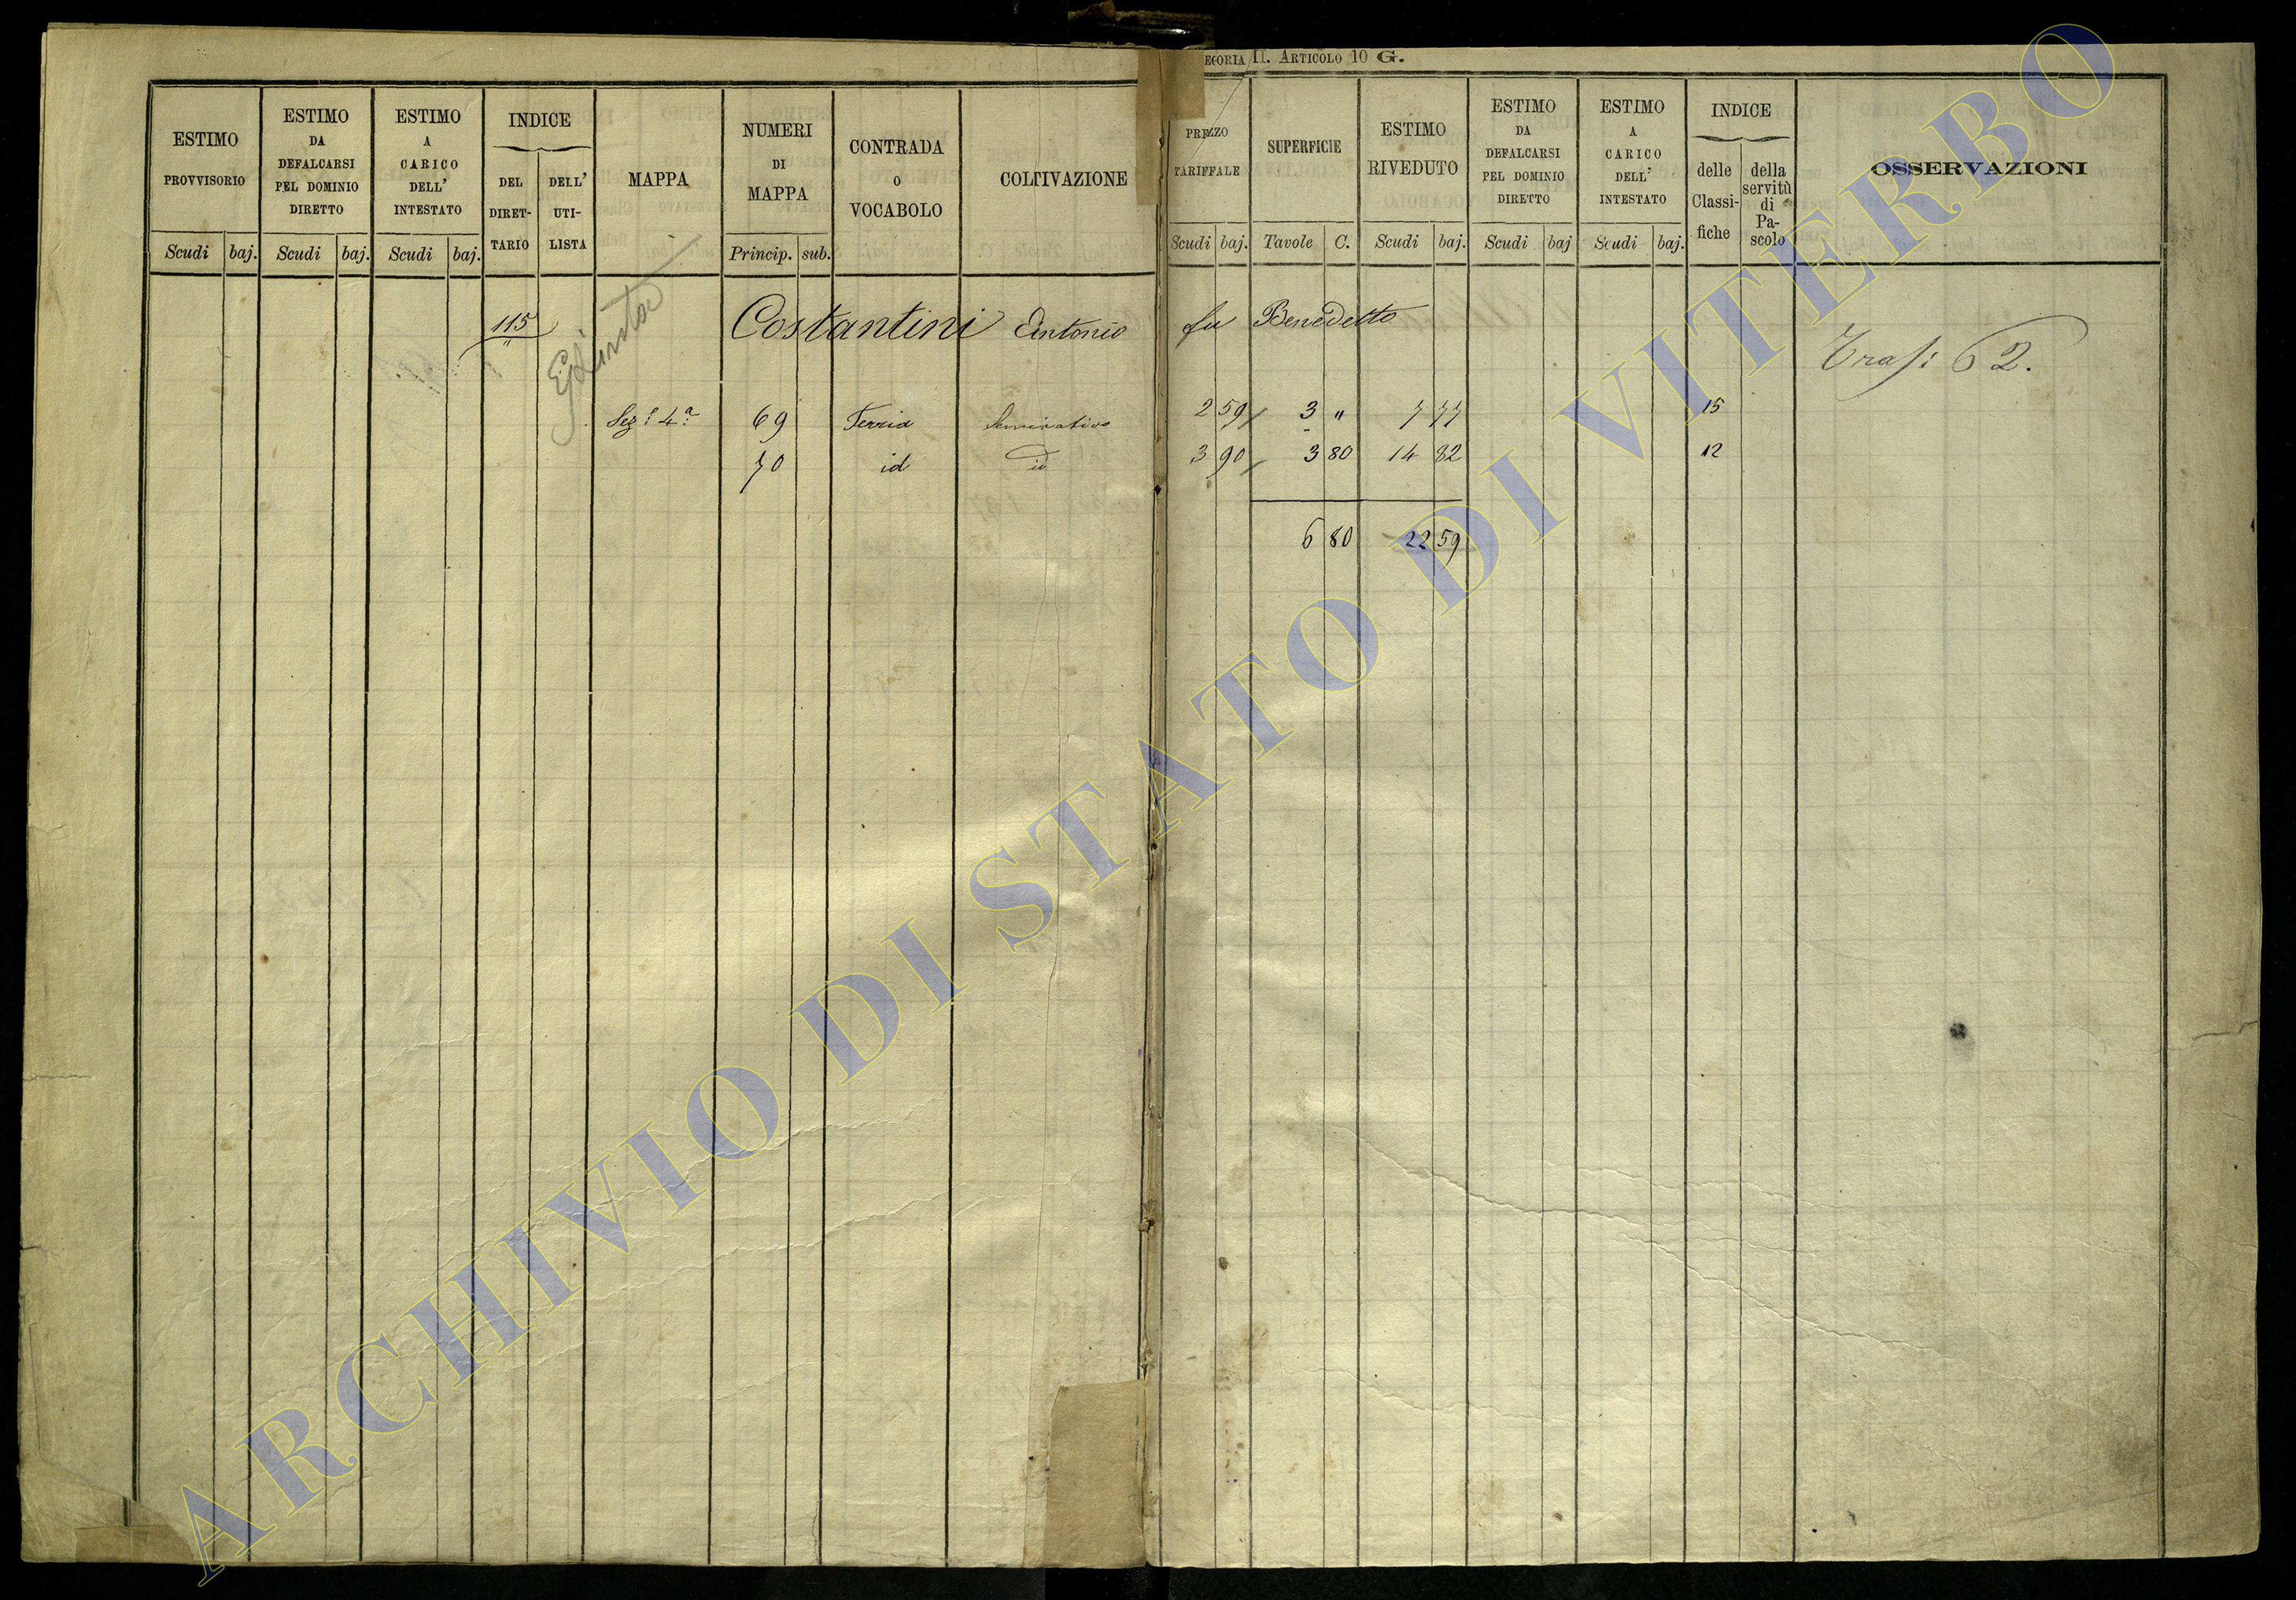 EGORIA II. ARTICOLO 10 G.
ESTIMO PROVVISORIO
Scudi baj.
ESTIMO DA DEFALCARSI PEL DOMINIO DIRETTO
Scudi baj.
ESTIMO A CARICO DELL' INTESTATO
Scudi baj.
INDICE
DEL DIRET-TARIO
DELL' UTI-LISTA
MAPPA
NUMERI DI MAPPA
Princip. sub.
CONTRADA O VOCABOLO
COLTIVAZIONE
PREZZO TARIFFALE
Scudi baj.
SUPERFICIE
Tavole C.
ESTIMO RIVEDUTO
Scudi baj.
ESTIMO DA DEFALCARSI PEL DOMINIO DIRETTO
Scudi baj
ESTIMO A CARICO DELL' INTESTATO
Scudi baj.
INDICE
delle Classi-fiche
della servitù di Pa-scolo
OSSERVAZIONI
115 Costantini Antonio fu Benedetto
Estinta
Trasf: 62.
Sez: 4ª 69 Ferria Seminativo 2 59 3 " 7 77 15
70 id id 3 90 3 80 14 82 12
6 80 22 59
ARCHIVIO DI STATO DI VITERBO